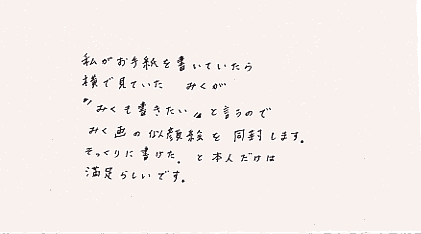 私がお手紙を書いていたら
横で見ていた みくが
〝みくも書きたい〟と言うので
みく画の似顔絵を同封します。
そっくりに書けた。と本人だけは
満足らしいです。